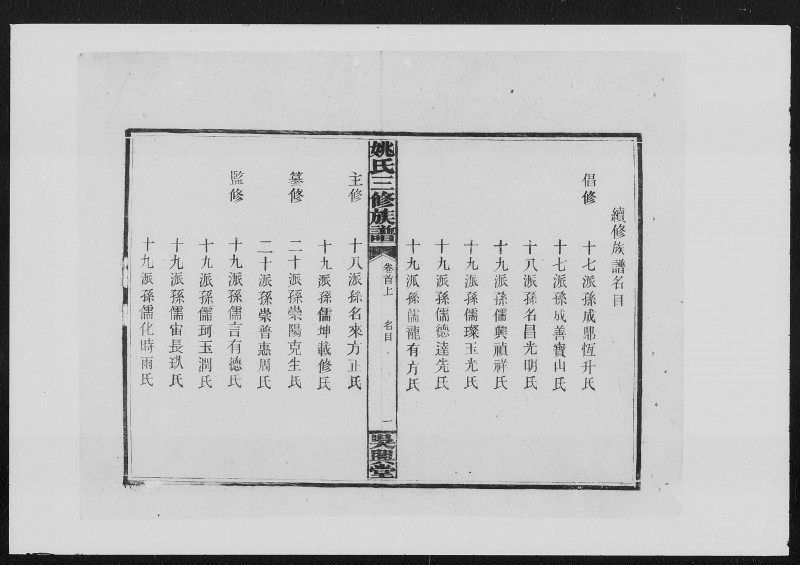 續修族譜名目
倡修 十七派孫成鼎恆升氏
十七派孫成善寶山氏
十八派孫名昌光明氏
十九派孫儒興禎祥氏
十九派孫儒璨玉光氏
十九派孫儒德達先氏
十九派孫儒龍有方氏
姚氏三修族譜 卷首上 名目 一 吳興堂
主修 十八派孫名來方正氏
十九派孫儒坤載修氏
纂修 二十派孫崇陽克生氏
二十派孫崇普惠周氏
監修 十九派孫儒言有德氏
十九派孫儒珂玉潤氏
十九派孫儒宙長玖氏
十九派孫儒化時雨氏